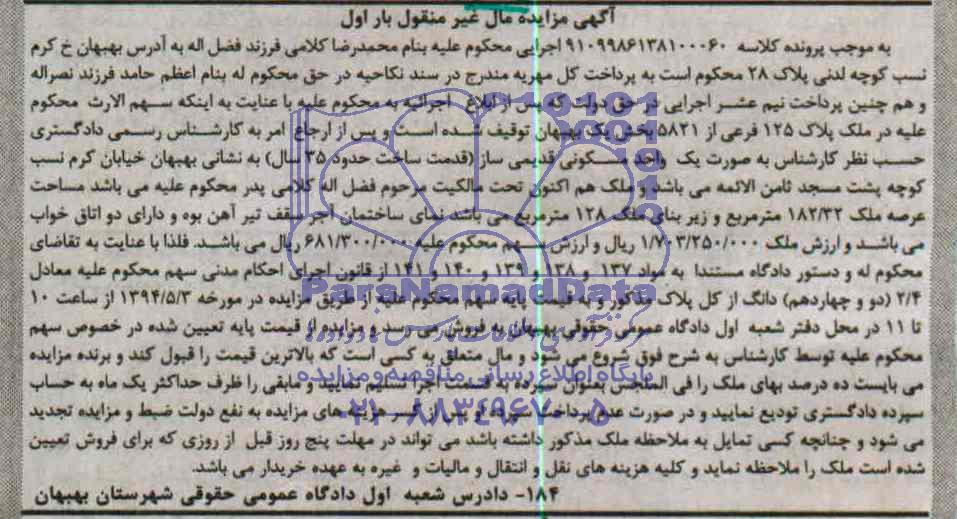 آگهی مزایده مال غیر منقول بار اول
به موجب پرونده کلاسه ۹۱۰۹۹۸۶۱۳۸۱۰۰۰۶۰ اجرایی محکوم علیه بنام محمدرضا کلامی فرزند فضل اله به آدرس بهبهان خ کرم
نسب کوچه لدنی پلاک ۲۸ محکوم است به پرداخت کل مهریه مندرج در سند نکاحیه در حق محکوم له بنام اعظم حامد فرزند نصراله
و هم چنین پرداخت نیم عشر اجرایی در حق دولت که پس از ابلاغ اجرائیه به محکوم علیه با عنایت به اینکه سهم الارث محکوم
علیه در ملک پلاک ۱۲۵ فرعی از ۵۸۲۱ بخش یک بهبهان توقیف شده است و پس از ارجاع امر به کارشناس رسمی دادگستری
حسب نظر کارشناس به صورت یک واحد مسکونی قدیمی ساز (قدمت ساخت حدود ۳۵ سال) به نشانی بهبهان خیابان کرم نسب
کوچه پشت مسجد ثامن الائمه می باشد و ملک هم اکنون تحت مالکیت مرحوم فضل اله کلامی پدر محکوم علیه می باشد مساحت
عرصه ملک ۱۸۲/۳۲ مترمربع و زیر بنای ملک ۱۲۸ مترمربع می باشد نمای ساختمان آجر سقف تیر آهن بوده و دارای دو اتاق خواب
می باشد و ارزش ملک ۱/۷۰۳/۲۵۰/۰۰۰ ریال و ارزش سهم محکوم علیه ۶۸۱/۳۰۰/۰۰۰ ریال می باشد. فلذا با عنایت به تقاضای
محکوم له و دستور دادگاه مستندا به مواد ۱۳۷ و ۱۳۸ و ۱۳۹ و ۱۴۰ و ۱۴۱ از قانون اجرای احکام مدنی سهم محکوم علیه معادل
۲/۴ (دو و چهاردهم) دانگ از کل پلاک مذکور و به قیمت پایه سهم محکوم علیه از طریق مزایده در مورخه ۱۳۹۴/۵/۳ از ساعت ۱۰
تا ۱۱ در محل دفتر شعبه اول دادگاه عمومی حقوقی بهبهان به فروش می رسد و مزایده از قیمت پایه تعیین شده در خصوص سهم
محکوم علیه توسط کارشناس به شرح فوق شروع می شود و مال متعلق به کسی است که بالاترین قیمت را قبول کند و برنده مزایده
می بایست ده درصد بهای ملک را فی المجلس بعنوان سپرده به قسمت اجرا تسلیم نمایید و مابقی را ظرف حداکثر یک ماه به حساب
سپرده دادگستری تودیع نمایید و در صورت عدم پرداخت سپرده او پس از کسر هزینه های مزایده به نفع دولت ضبط و مزایده تجدید
می شود و چنانچه کسی تمایل به ملاحظه ملک مذکور داشته باشد می تواند در مهلت پنج روز قبل از روزی که برای فروش تعیین
شده است ملک را ملاحظه نماید و کلیه هزینه های نقل و انتقال و مالیات و غیره به عهده خریدار می باشد.
۱۸۴- دادرس شعبه اول دادگاه عمومی حقوقی شهرستان بهبهان
ParsNamadData
پایگاه اطلاع رسانی مناقصه و مزایده
۰۲۱-۸۸۳۴۹۶۷۰-۵